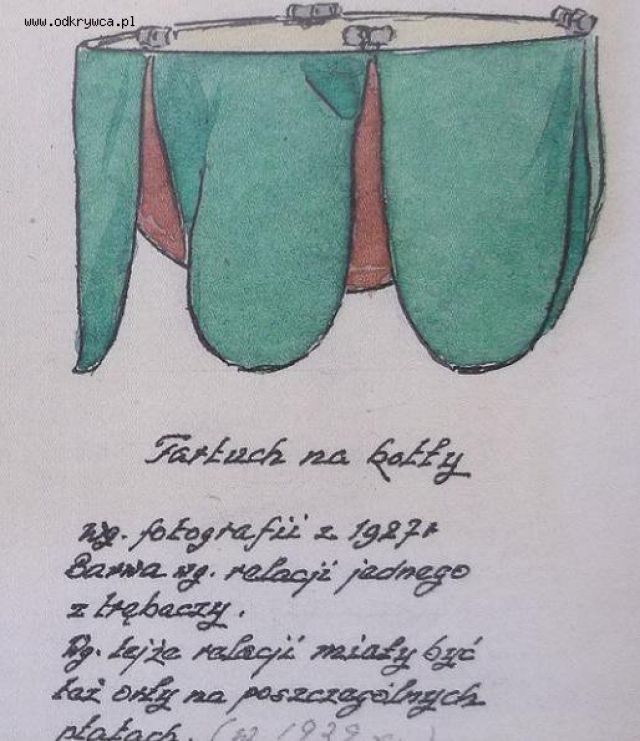 www.odkrywca.pl
Fartuch na kotły
wg. fotografii z 1927r
Barwa wg. relacji jednego
z trębaczy.
Wg. tejże relacji miały być
też orły na poszczególnych
płatach. (w 1939 r.)